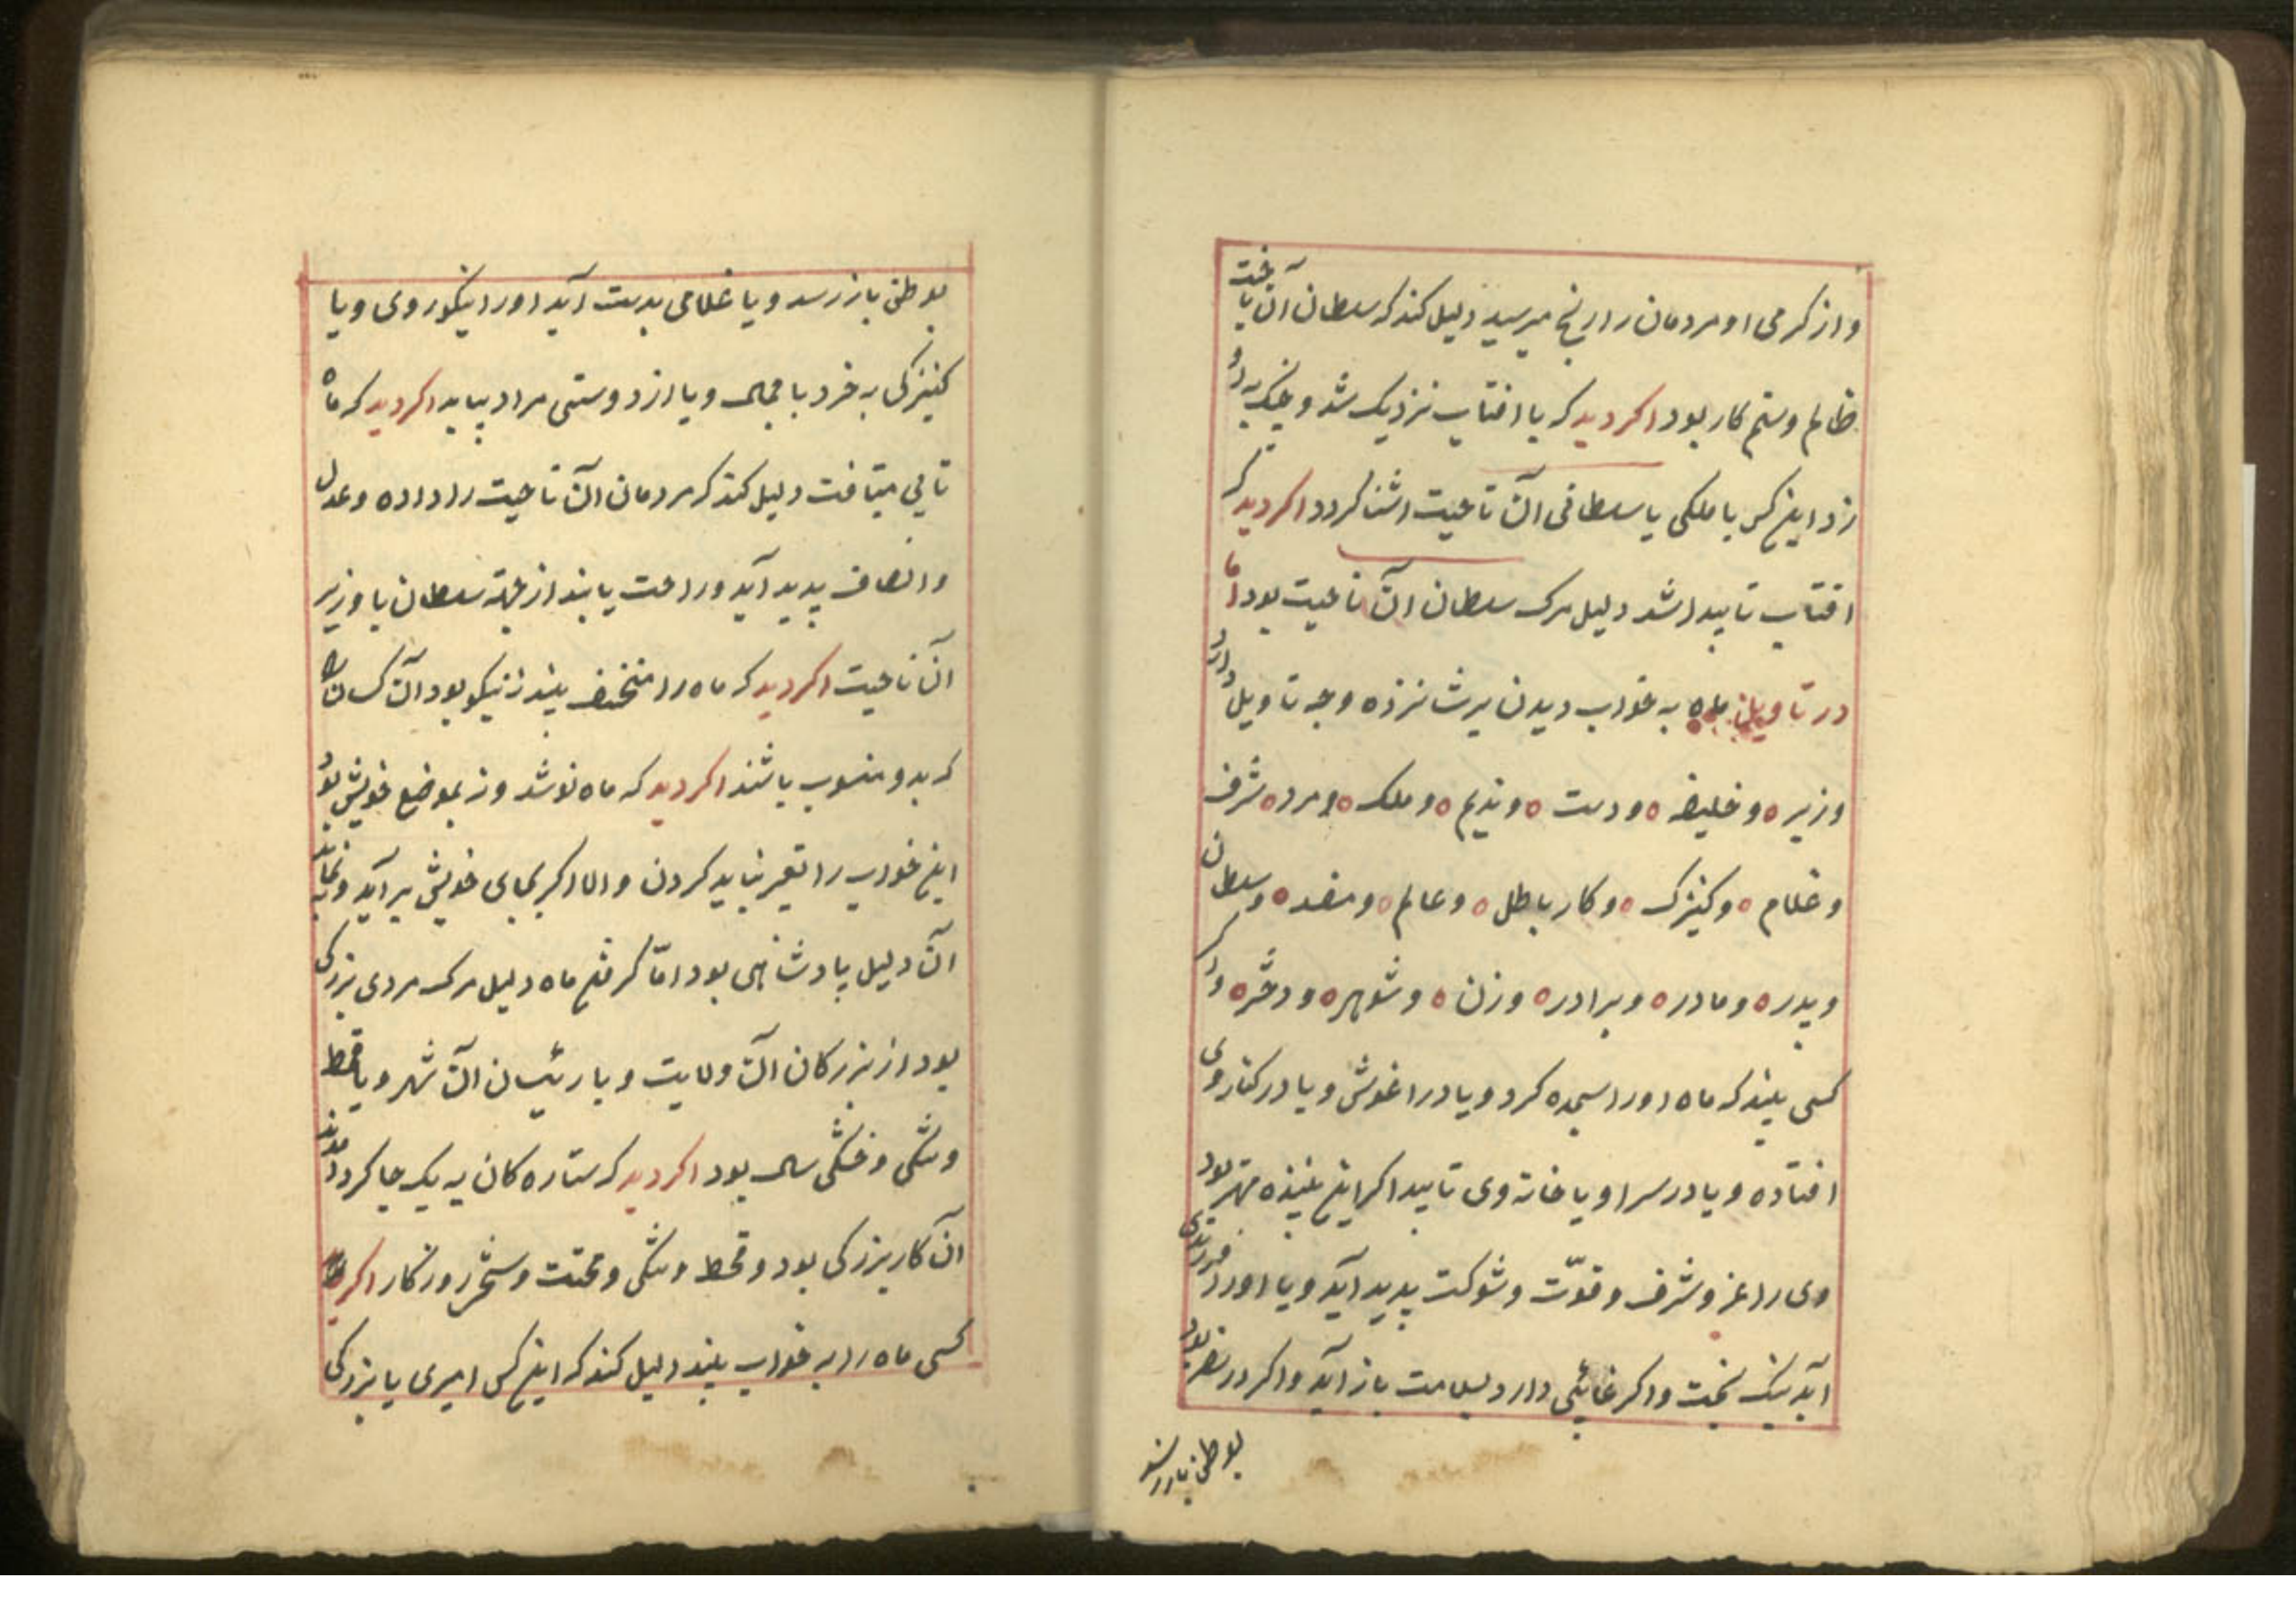 واز کرمی او مردمان را رنج میرسید دلیل کند که سلطان آن ناحیت
ظالم وستم کار بود اکر دید که با افتاب نزدیک شد و چنک به او
زد این کس با ملکی یا سلطانی آن ناحیت اشنا کردد اکر دید که
افتاب ناپیدا شد دلیل مرک سلطان آن ناحیت بود اما
در تاویل ماه به خواب دیدن برشانزده وجه تاویل دارد
وزیر ٥ و خلیفه ٥ ودست ٥ وندیم ٥ وملک ٥ ومرد ٥ شرف
وغلام ٥ وکنیزک ٥ وکار باطل ٥ وعالم ٥ ومفسد ٥ وسلطان
وپدر ٥ ومادر ٥ وبرادر ٥ وزن ٥ وشوهر ٥ ودختر ٥ واکر
کسی بیند که ماه اورا سجده کرد ویا در اغوش ویا در کنار وی
افتاده ویا در سرا ویا خانه وی تابید اکر این بیننده مهتر بود
وی را عز وشرف وقوّت وشوکت پدید آید ویا اورا فرزندی
آید نیک بخت واکر غائبی دارد بسلامت باز آید واکر در سفر بود
بوطن باز رسد
بوطن باز رسد ویا غلامی بدست آید اورا نیکوروی ویا
کنیزکی به خرد با جمال ویا از دوستی مراد بیابد اکر دید که ماه
تابی میتافت دلیل کند که مردمان آن ناحیت را داده وعدل
وانصاف پدید آید وراحت یابند از جهة سلطان یا وزیر
آن ناحیت اکر دید که ماه را منخسف بیند نیکو بود آن کسان را
که بدو منسوب باشند اکر دید که ماه نو شد ونه بموضع خویش بود
این خواب را تعبیر نباید کردن واما اکر بجای خویش برآید
آن دلیل پادشاهی بود امّا کرفتن ماه دلیل مرک مردی بزرک
بود از بزرکان آن ولایت ویا رئیسان آن شهر ویا قحط
وتنکی وخشکی سال بود اکر دید که ستاره کان به یک جا کرد آمدند
آن کار بزرکی بود وقحط وتنکی ومحنت وسختی روزکار اکر
کسی ماه را به خواب بیند دلیل کند که این کس امیری یا بزرکی